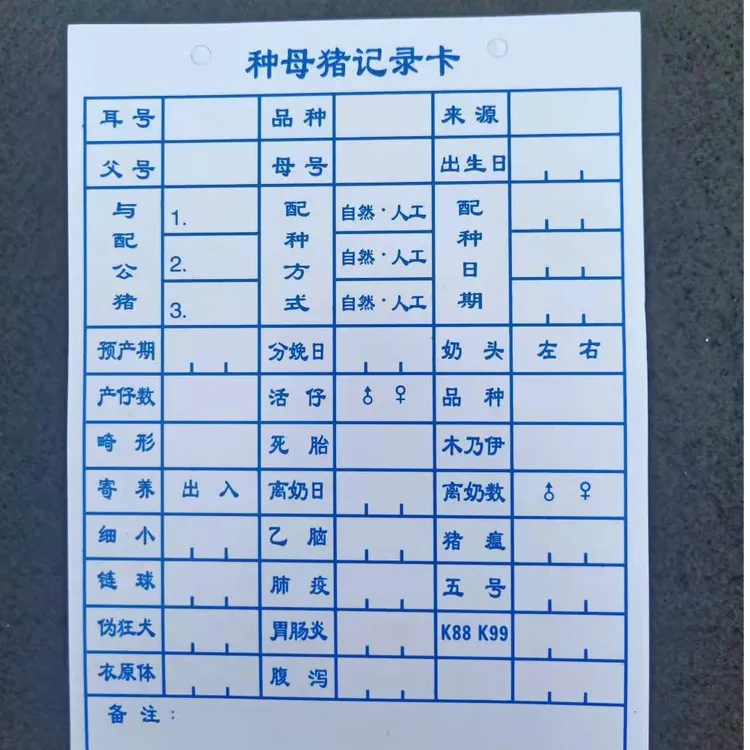 种母猪记录卡
耳号 品种 来源
父号 母号 出生日
与配公猪 1. 配种方式 自然·人工 配种日期
2. 自然·人工
3. 自然·人工
预产期 分娩日 奶头 左 右
产仔数 活仔 ♂ ♀ 品种
畸形 死胎 木乃伊
寄养 出 入 离奶日 离奶数 ♂ ♀
细小 乙脑 猪瘟
链球 肺疫 五号
伪狂犬 胃肠炎 K88 K99
衣原体 腹泻
备注：